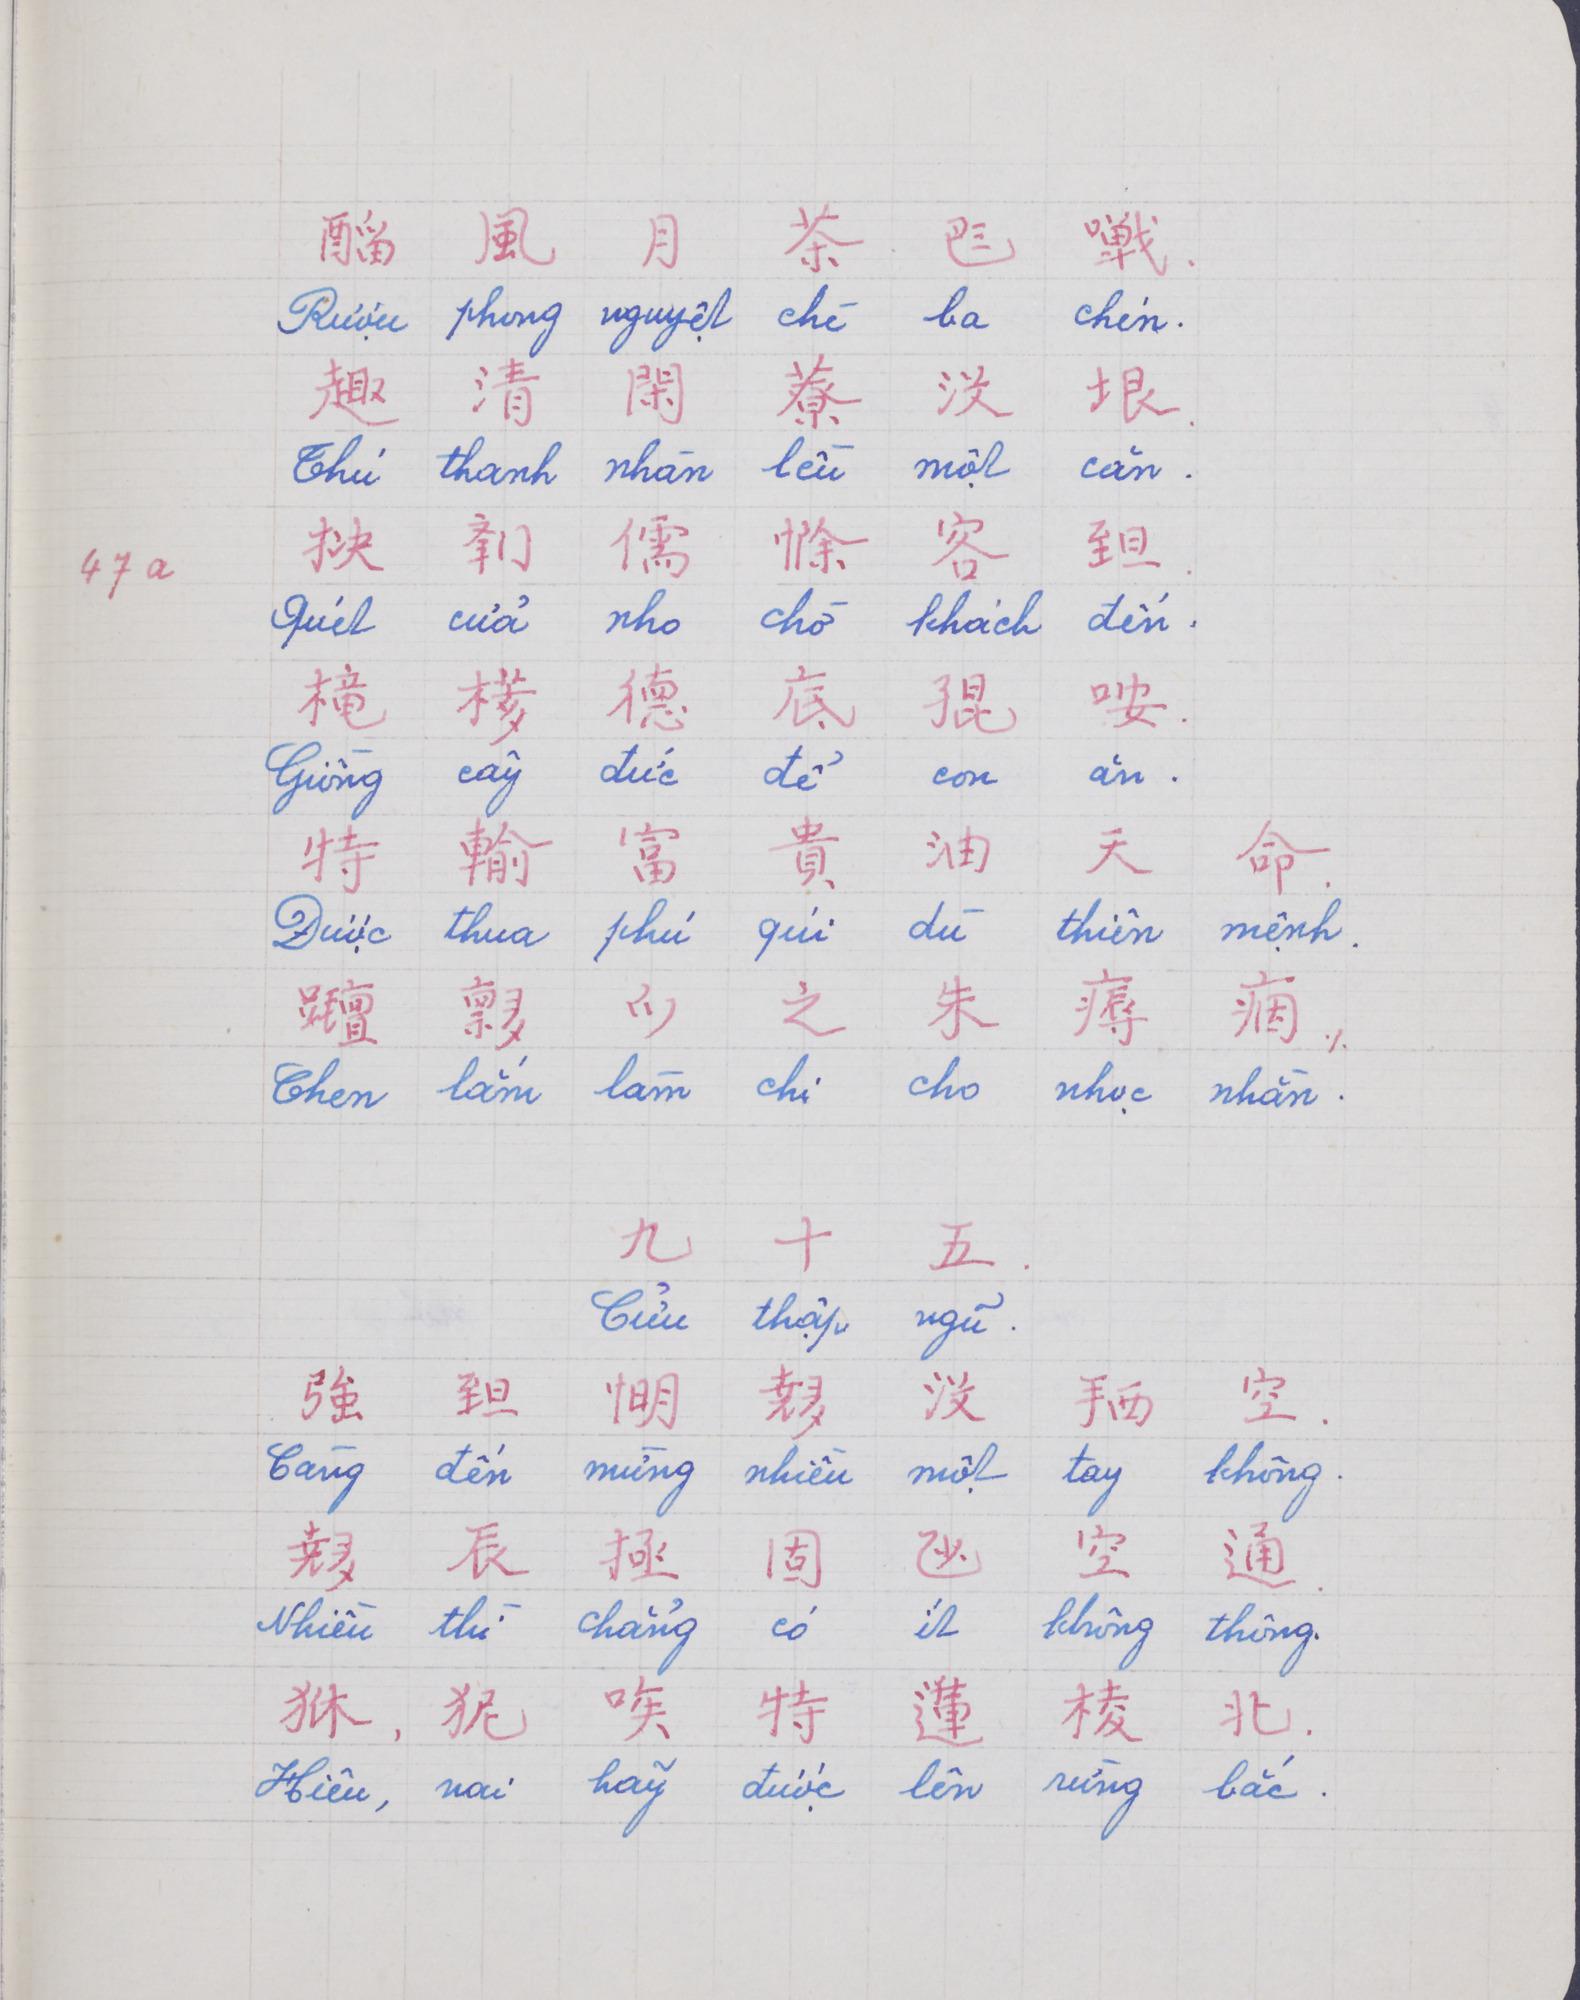 醙風月茶𠀧㗰.
Rượu phong nguyệt chè ba chén.
趣清閑藔沒垠.
Thú thanh nhàn lều một căn.
47a
抉𨷶儒㤕客𦤾.
Quét cửa nho chờ khách đến.
橦𣘃德底𡥵咹.
Giồng cây đức để con ăn.
特輸富貴油天命.
Được thua phú quí dù thiên mệnh.
𠿯𡗋𪜀之朱𤹘𤶐⁒
Chen lắm làm chi cho nhọc nhằn.
九十五.
Cửu thập ngũ.
強𦤾𢜠𡗉沒𢬣空.
Càng đến mừng nhiều một tay không.
𡗉辰拯固𠃣空通.
Nhiều thì chẳng có ít không thông.
狖,狔唉特蓮棱北.
Hiêu, nai hãy được lên rừng bắc.